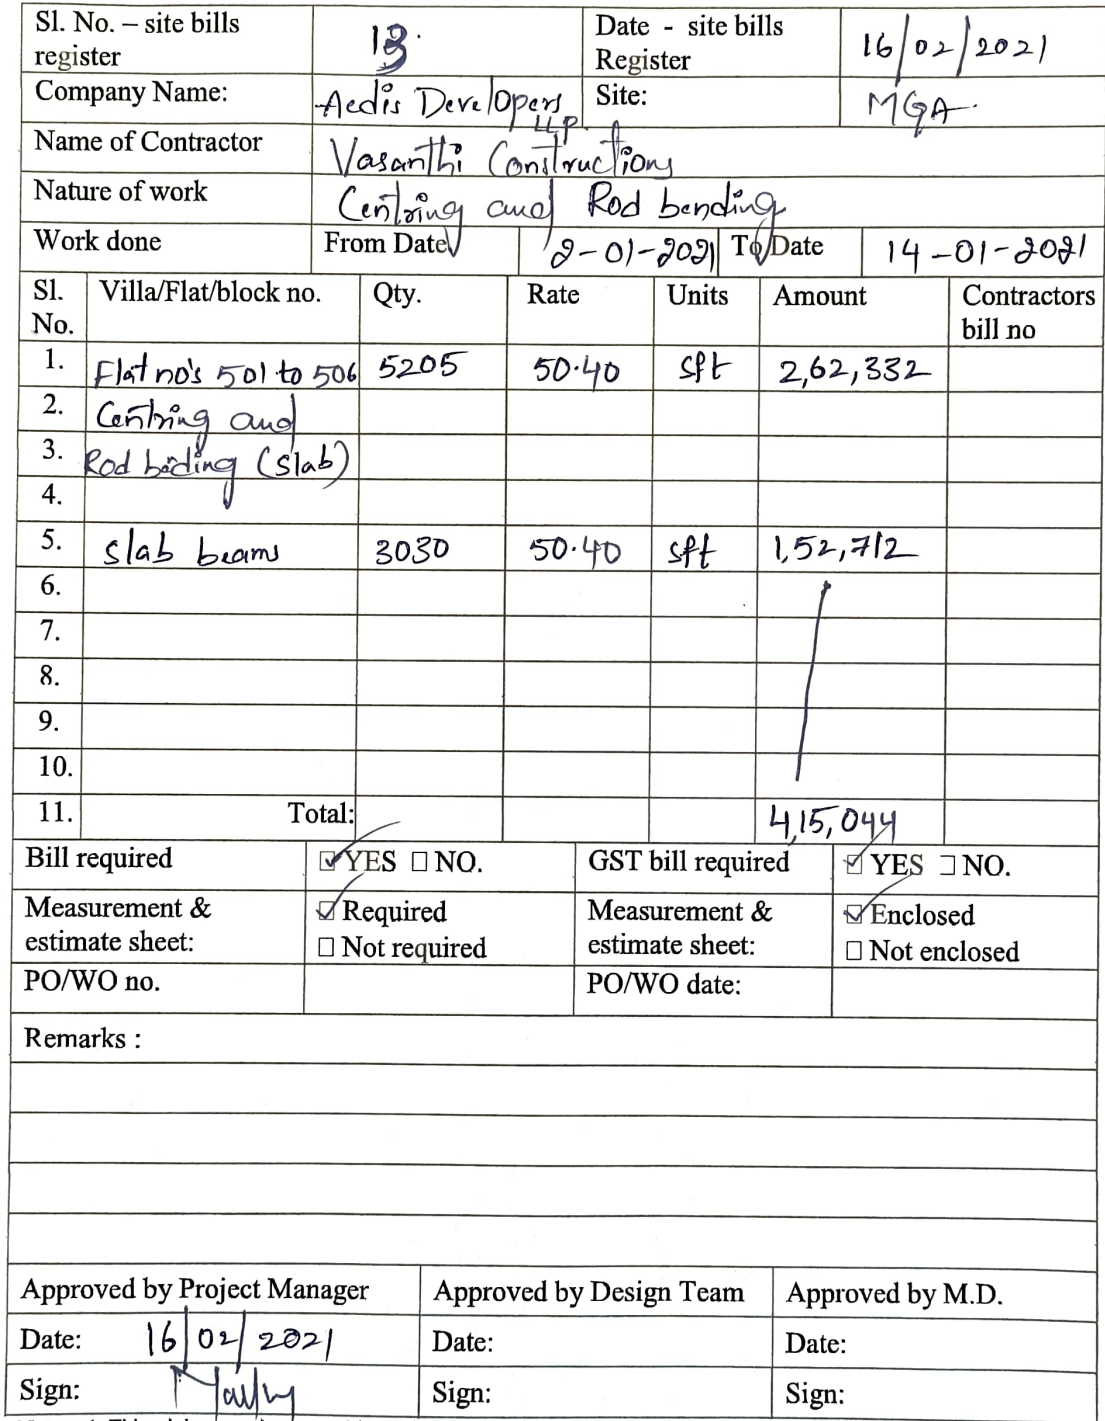 Sl. No. – site bills register 13. Date - site bills Register 16/02/2021
Company Name: Aedis Developers LLP. Site: MGA.
Name of Contractor Vasanthi Constructions
Nature of work Centring and Rod bending
Work done From Date 2-01-2021 To Date 14-01-2021
Sl. No. Villa/Flat/block no. Qty. Rate Units Amount Contractors bill no
1. Flat no's 501 to 506 5205 50.40 sft 2,62,332
2. Centring and
3. Rod bending (slab)
4.
5. slab beams 3030 50.40 sft 1,52,712
6.
7.
8.
9.
10.
11. Total: 4,15,044
Bill required ☑ YES ☐ NO. GST bill required ☑ YES ☐ NO.
Measurement & estimate sheet: ☑ Required ☐ Not required Measurement & estimate sheet: ☑ Enclosed ☐ Not enclosed
PO/WO no. PO/WO date:
Remarks :
Approved by Project Manager Approved by Design Team Approved by M.D.
Date: 16/02/2021 Date: Date:
Sign: Sign: Sign: